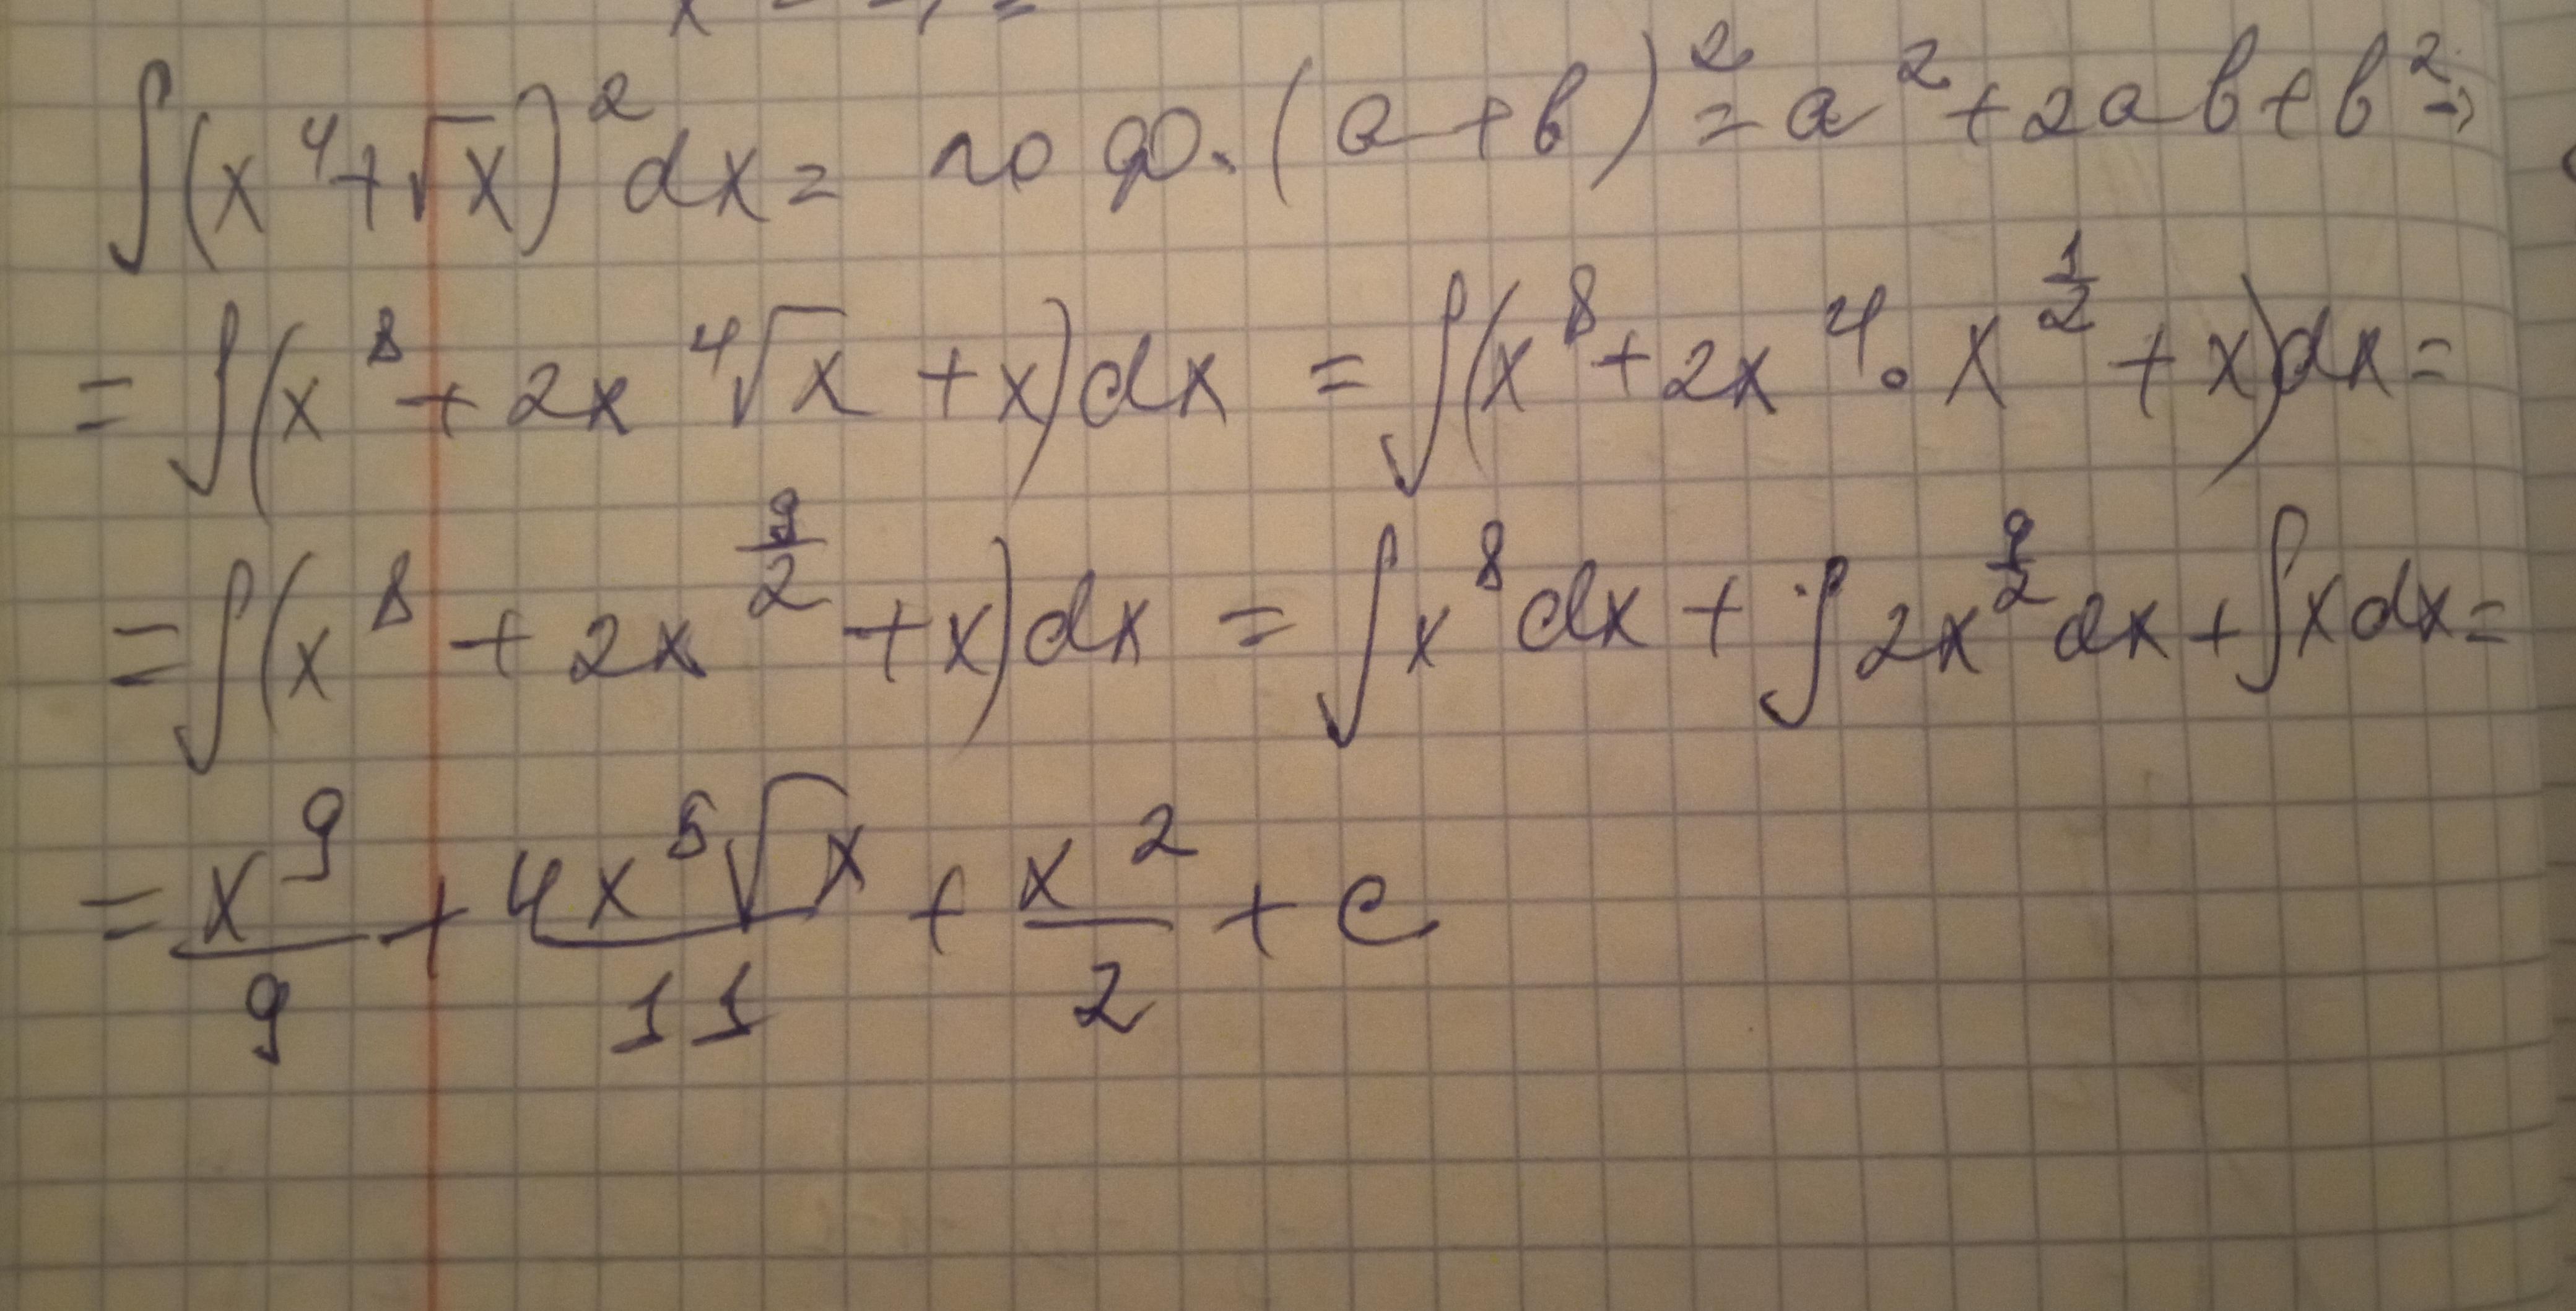 ∫(x⁴+√x)²dx= по ф. (a+b)²=a²+2ab+b²⇒
=∫(x⁸+2x⁴√x+x)dx=∫(x⁸+2x⁴·x^(1/2)+x)dx=
=∫(x⁸+2x^(9/2)+x)dx=∫x⁸dx+∫2x^(9/2)dx+∫xdx=
=x⁹/9+4x⁵√x/11+x²/2+c